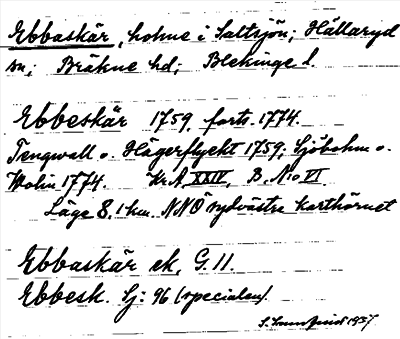 Ebbaskär, holme i Saltsjön; Hällaryd
sn; Bräkne hd; Blekinge l.
Ebbeskär 1759, forts. 1774.
Tengwall o. Hägerflycht 1759; Sjöbohm o.
Wolin 1774. Kr. A XXIV, B. N:o VI
Läge 8.1 km. NNÖ sydvästra karthörnet
Ebbaskär ek, G. 11.
Ebbesk. Sj: 96 (specialen).
1937